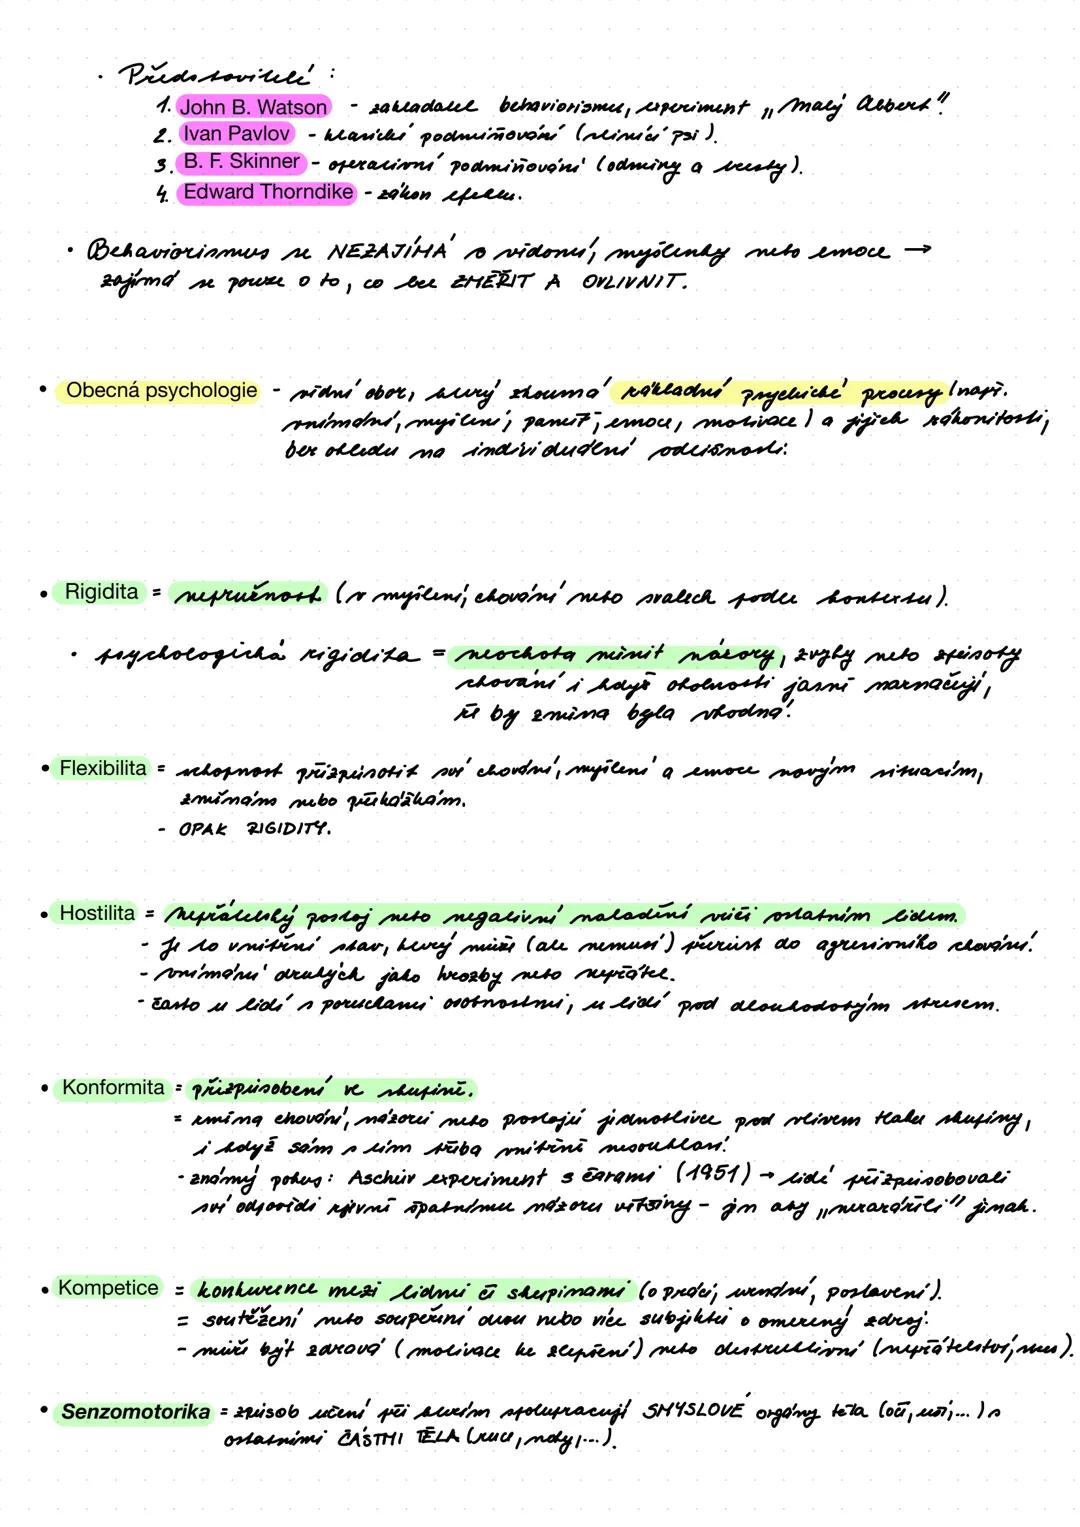 • Představitelé :
1. John B. Watson - zakladatel behaviorismu, experiment „Malý Albert"
2. Ivan Pavlov - klasické podmiňování (slinící psi).
3. B. F. Skinner - operativní podmiňování (odměny a tresty).
4. Edward Thorndike - zákon efektu.
• Behaviorismus se NEZAJÍMÁ o vědomí, myšlenky nebo emoce →
zajímá se pouze o to, co lze ZMĚŘIT A OVLIVNIT.
• Obecná psychologie - vědní obor, který zkoumá základní psychické procesy (např.
vnímání, myšlení, paměť, emoce, motivace) a jejich zákonitosti,
bez ohledu na individuální odlišnosti.
• Rigidita = nepružnost (v myšlení, chování nebo svalech podle kontextu).
• psychologická rigidita = neochota měnit názory, zvyky nebo způsoby
chování i když okolnosti jasně naznačují,
že by změna byla vhodná.
• Flexibilita = schopnost přizpůsobit své chování, myšlení a emoce novým situacím,
změnám nebo překážkám.
- OPAK RIGIDITY.
• Hostilita = nepřátelský postoj nebo negativní naladění vůči ostatním lidem.
- Je to vnitřní stav, který může (ale nemusí) přerůst do agresivního chování.
- vnímání druhých jako hrozby nebo nepřátel.
- často u lidí s poruchami osobnostmi, u lidí pod dlouhodobým stresem.
• Konformita = přizpůsobení ve skupině.
= změna chování, názorů nebo postojů jednotlivce pod vlivem tlaku skupiny,
i když sám s tím třeba vnitřně nesouhlasí.
- známý pokus: Aschův experiment s čárami (1951) → lidé přizpůsobovali
své odpovědi zjevně špatnému názoru většiny - jen aby „nezaráželi" jinak.
• Kompetice = konkurence mezi lidmi či skupinami (o práci, uznání, postavení).
= soutěžení nebo soupeření dvou nebo více subjektů o omezený zdroj.
- může být zdravá (motivace ke zlepšení) nebo destruktivní (nepřátelství,
• Senzomotorika = způsob učení při kterém spolupracují SMYSLOVÉ orgány těla (oči, uši,...) s
ostatními ČÁSTMI TĚLA (ruce, nohy,...).